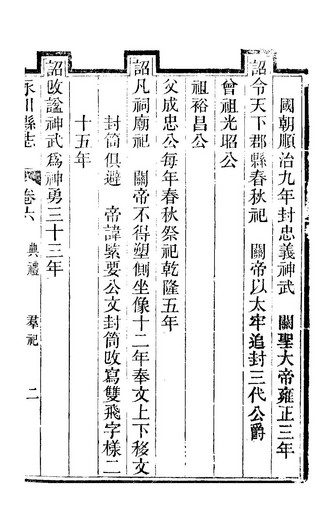 國朝順治九年封忠義神武 關聖大帝雍正三年
詔令天下郡縣春秋祀 關帝以太牢追封三代公爵
曾祖光昭公
祖裕昌公
父成忠公每年春秋祭祀乾隆五年
詔凡祠廟祀 關帝不得塑側坐像十二年奉文上下移文
封筒俱避 帝諱緊要公文封筒改寫雙飛字樣二
十五年
詔改諡神武爲神勇三十三年
永川縣志 卷六 典禮 羣祀 二